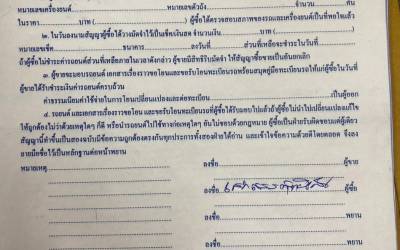 หมายเลขเครื่องยนต์..............................หมายเลขตัวถัง..............................จำนวน..........คัน
ในราคา..............บาท (..............................) ผู้ซื้อได้ตรวจสอบสภาพของรถและเครื่องยนต์เป็นที่พอใจแล้ว
๒. ในวันลงนามสัญญาผู้ซื้อได้วางมัดจำไว้เป็นเช็คเงินสด จำนวนเงิน..............บาท (..............................)
หมายเลขเช็ค..............ธนาคาร..............ลงวันที่..............ส่วนที่เหลือจะชำระในวันที่..............
ถ้าผู้ซื้อไม่ชำระค่ารถยนต์ส่วนที่เหลือภายในเวลาดังกล่าว ผู้ขายมีสิทธิริบมัดจำ ให้สัญญาซื้อขายเป็นอันยกเลิก
๓. ผู้ขายจะมอบรถยนต์ เอกสารเรื่องราวขอโอน และขอรับโอนทะเบียนรถพร้อมสมุดคู่มือทะเบียนรถให้แก่ผู้ซื้อในวันที่
ผู้ขายได้รับชำระเงินค่ารถยนต์ครบถ้วน
ค่าธรรมเนียมค่าใช้จ่ายในการโอนเปลี่ยนแปลงและต่อทะเบียน..............................เป็นผู้ออก
๔. รถยนต์ และเอกสารเรื่องราวขอโอน และขอรับโอนทะเบียนรถที่ผู้ซื้อได้รับมอบไปแล้วถ้าผู้ซื้อไม่นำไปเปลี่ยนแปลงแก้ไข
ให้ถูกต้องไม่ว่าด้วยเหตุใดๆ ก็ดี หรือนำรถยนต์ไปใช้ทางก่อเหตุใดๆ อันไม่ชอบด้วยกฎหมาย ผู้ซื้อเป็นฝ่ายรับผิดชอบแต่ผู้เดียว
สัญญานี้ทำขึ้นเป็นสองฉบับมีข้อความถูกต้องตรงกันทุกประการทั้งสองฝ่ายได้อ่าน และเข้าใจข้อความด้วยดีโดยตลอด จึงลง
ลายมือชื่อไว้เป็นหลักฐานต่อหน้าพยาน
หมายเหตุ..............................ลงชื่อ..............................ผู้ขาย
ลงชื่อ ผู้ซื้อ
ลงชื่อ..............................พยาน
ลงชื่อ..............................พยาน